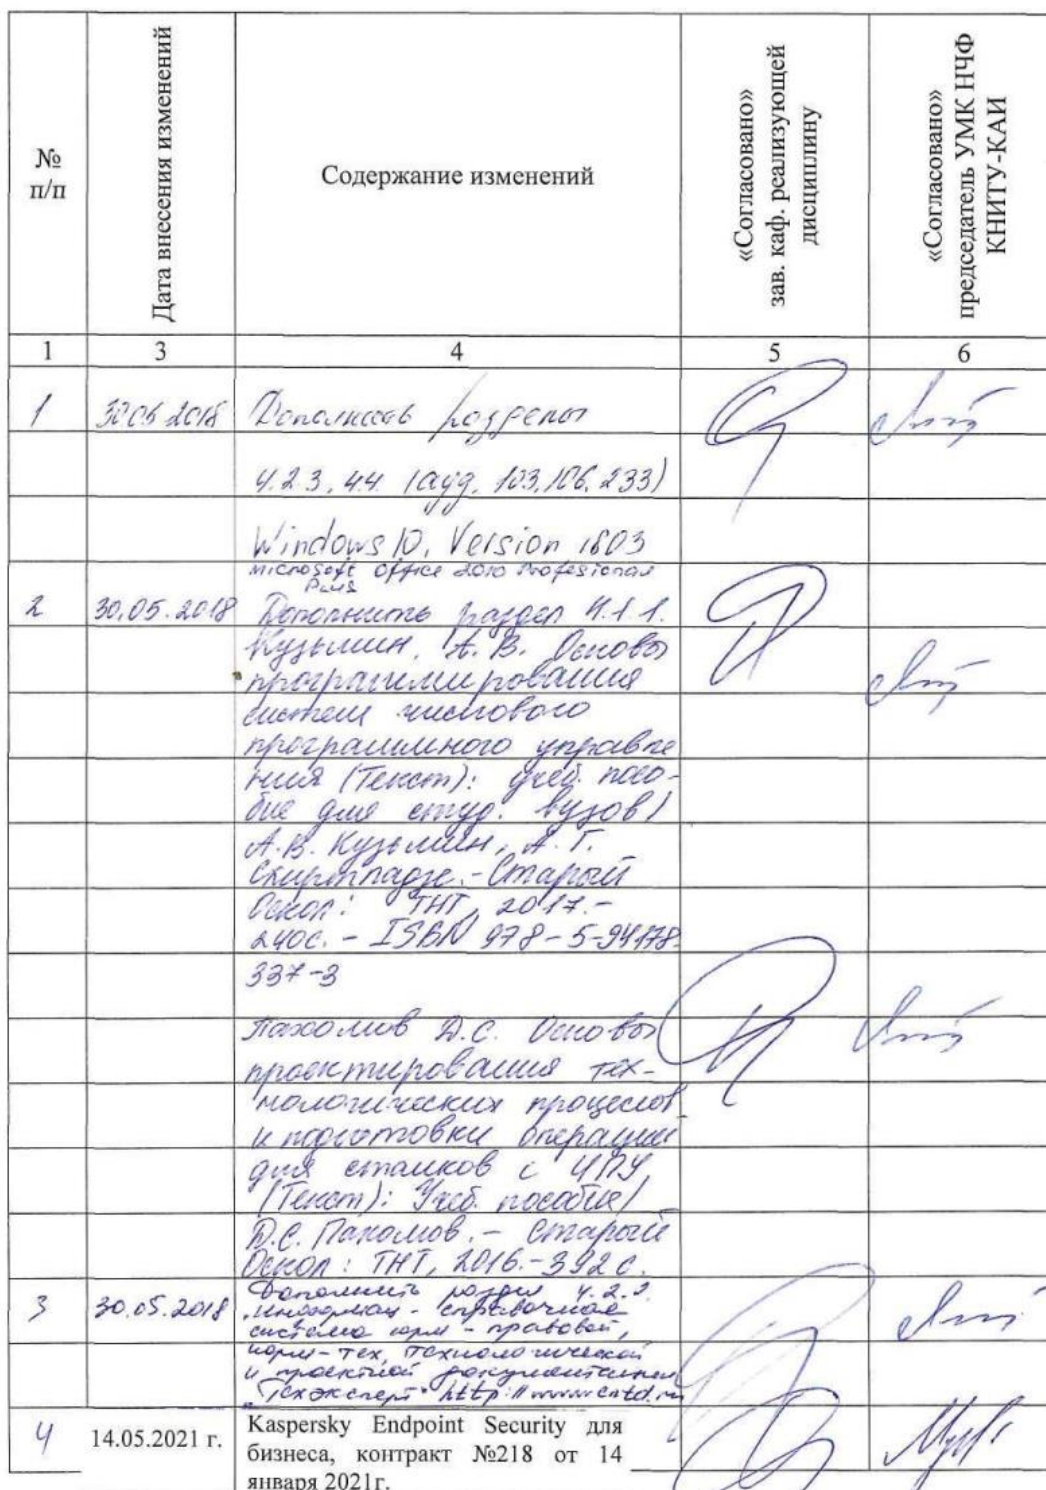 №
п/п
Дата внесения изменений
Содержание изменений
«Согласовано»
зав. каф. реализующей
дисциплину
«Согласовано»
председатель УМК НЧФ
КНИТУ-КАИ
1 3 4 5 6
1 30.05.2018 Дополнить разделы
4.2.3, 4.4. (ауд. 103, 106, 233)
Windows 10, Version 1803
Microsoft Office 2010 Profesional
Plus
2 30.05.2018 Дополнить раздел 4.1.1.
Кузьмин, А.В. Основы
программирования
систем числового
программного управле
ния (Текст): учеб. посо-
бие для студ. вузов /
А.В. Кузьмин, А.Г.
Схиртладзе. - Старый
Оскол: ТНТ, 2017. -
240с. - ISBN 978-5-94178-
337-3
Пахомов Д.С. Основы
проектирования тех-
нологических процессов
и подготовки операций
для станков с ЧПУ
(Текст): Учеб. пособие /
Д.С. Пахомов. - Старый
Оскол: ТНТ, 2016. - 392 с.
3 30.05.2018 Дополнить раздел 4.2.2.
информац - справочная
система норм - правовой,
норм - тех, технологической
и проектной документации
"Техэксперт" http://www.cntd.ru
4 14.05.2021 г. Kaspersky Endpoint Security для
бизнеса, контракт №218 от 14
января 2021г.